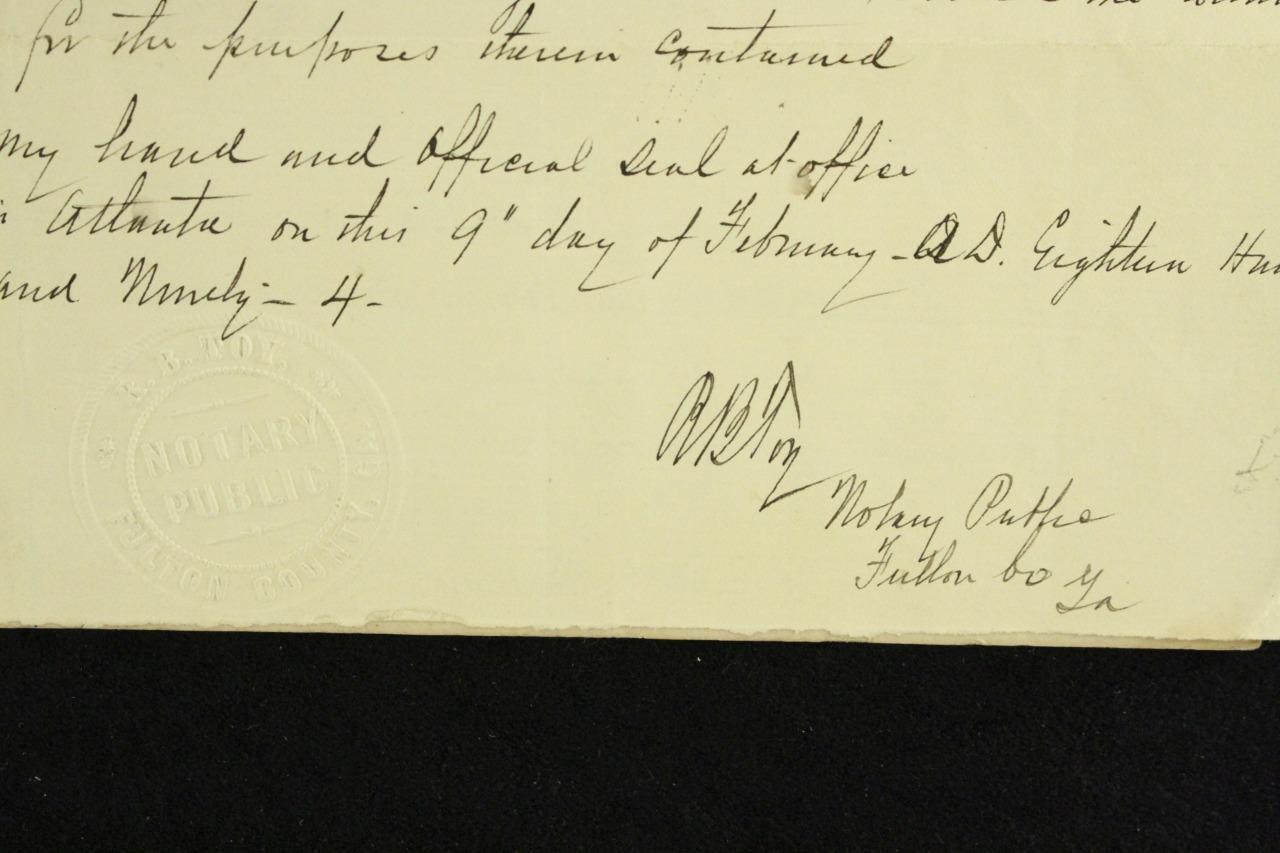 for the purposes therein contained
my hand and official seal at office
Atlanta on this 9" day of February - A.D. Eighteen
and Ninety - 4 -
R. B. TOY.
NOTARY
PUBLIC
FULTON COUNTY
RBToy
Notary Public
Fulton Co Ga